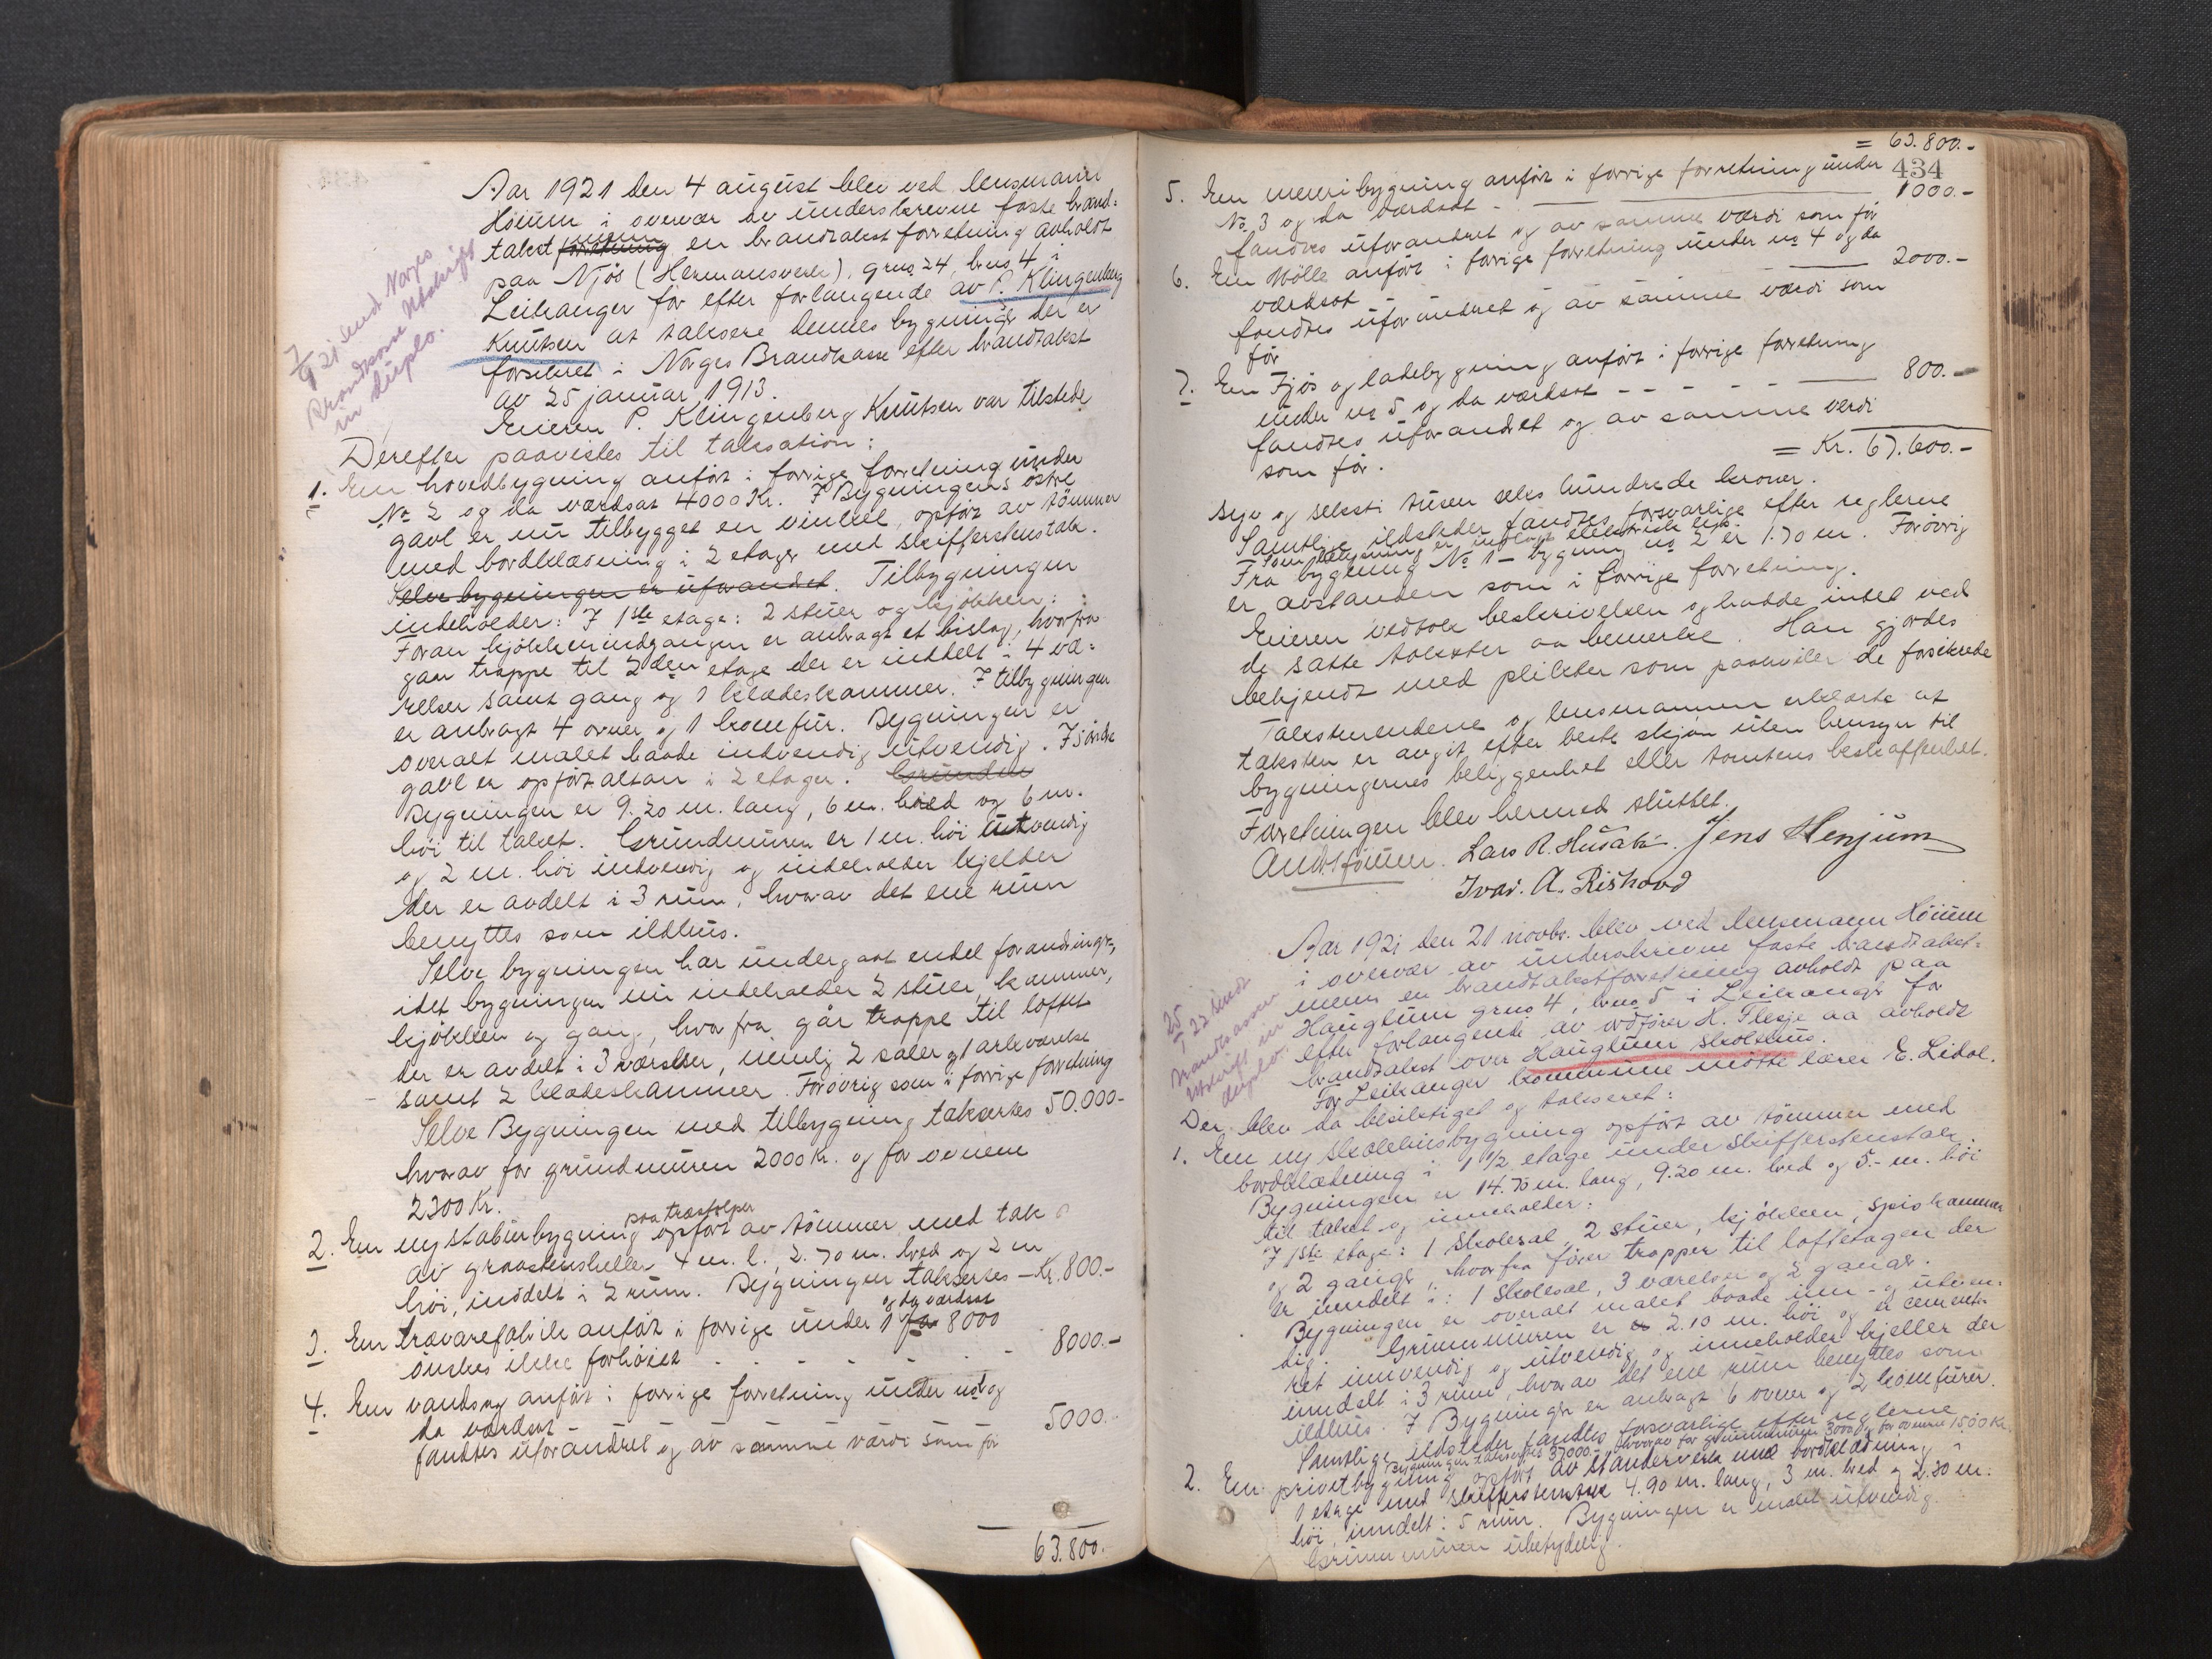 Aar 1921 den 4 august blev ved lensmann
Höium i overvær av underskrevne faste brand-
takst forretning menn en brandtakst forretning avholdt
paa Njös (Hermansverk), grno 24, brno 4 i
Leikanger for efter forlangende av P. Klingenberg
Knutsen at taksere dennes bygninger der er
forsikret i Norges Brandkasse efter brandtakst
av 25 januar 1913.
Eieren P. Klingenberg Knutsen var tilstede
7/9 21 sendt Norges
Brandkasse Utskrift
in duplo.
Derefter paavistes til taksation:
1. En hovedbygning anfört i forrige forretning under
No 2 og da værdsat 4000 Kr. I Bygningens östre
gavl er nu tilbygget en vinkel, opfört av tömmer
med bordklædning i 2 etager med skifferstenstak.
Selve bygningen er uforandret. Tilbygningen
indeholder: I 1ste etage: 2 stuer og kjökken:
Foran kjökkenindgangen er anbragt et bislag, hvorfra
gaar trappe til 2den etage der er inddelt i 4 væ-
relser samt gang og 1 klædeskammer. I tilbygningen
er anbragt 4 ovner og 1 komfur. Bygningen er
overalt malet baade indvendig utvendig. I söndre
gavl er opfört altan i 2 etager. Grunden
Bygningen er 9.20 m. lang, 6 m. bred og 6 m.
höi til taket. Grundmuren er 1 m. höi utvendig
og 2 m. höi indvendig og indeholder kjelder
der er avdelt i 3 rum, hvorav det ene rum
benyttes som ildhus.
Selve bygningen har undergaat endel forandringer,
idet bygningen nu indeholder 2 stuer, kammer,
kjökken og gang, hvorfra går trappe til loftet
der er avdelt i 3 værelser, nemlig 2 saler og 1 arkværelse
samt 2 klædeskammer. Forövrig som i forrige forretning
Selve Bygningen med tilbygning takseres 50.000-
hvorav for grundmuren 2000 Kr. og for ovnene
2300 Kr.
2. En ny stabursbygning paa træstolper opfört av tömmer med tak
av graastensheller 4 m. l., 2.70 m. bred og 2 m
höi, inddelt i 2 rum. Bygningen takseres — Kr. 800.-
3. En trævarefabrik anfört i forrige under 1 og da værdsat for 8000
önskes ikke forhöiet - - - - - - 8000.-
4. En vandsag anfört i forrige forretning under no 1 og
da værdsat - 5000.-
fandtes uforandret og av samme værdi som för
63.800.
= 63.800.-
434
5. En meieribygning anfört i forrige forretning under
No 3 og da værdsat - 1000.-
fandtes uforandret og av samme værdi som för
6. En Mölle anfört i forrige forretning under no 4 og da
værdsat 2000.-
fandtes uforandret og av samme værdi som
för
7. En Fjös og ladebygning anfört i forrige forretning
under no 5 og da værdsat - - - - - 800.-
fandtes uforandret og av samme verdi
som för.
= Kr. 67.600.-
Syv og seksti tusen seks hundrede kroner.
Samtlige ildsteder fandtes forsvarlige efter reglerne
Som belysning er indlagt elektrisk lys.
Fra bygning No 1 - bygning no 2 er 1.70 m. Forövrig
er avstanden som i forrige forretning.
Eieren vedtok beskrivelsen og hadde intet ved
de satte takster aa bemerke. Han gjordes
bekjendt med plikter som paahviler de forsikrede
Takstmendene og lensmannen erklærte at
taksten er avgit efter beste skjön uten hensyn til
bygningernes beliggenhet eller tomtens beskaffenhet.
Forretningen blev hermed sluttet.
And. Höium. Lars R. Husabö. Jens Henjum
Ivar A. Rishovd
Aar 1921 den 21 novbr. blev ved lensmann Höium
i overvær av underskrevne faste brandtakst-
menn en brandtakstforretning avholdt paa
Hauglum grno 4, brno 5 i Leikanger for
efter forlangende av ordförer H. Flesje aa avholde
brandtakst over Hauglum skolehus.
For Leikanger kommune mötte lærer E. Lidal.
25/1 22 sendt
Brandkassen
Utskrift in
duplo.
Der blev da besiktiget og taksert:
1. En ny skolehusbygning opfört av tömmer med
bordklædning i 1 1/2 etage under skifferstenstak.
Bygningen er 14.70 m. lang, 9.20 m. bred og 5.- m. höi
til taket og inneholder:
I 1ste etage: 1 skolesal, 2 stuer, kjökken, spiskammer
og 2 ganger, hvorfra förer trapper til loftetagen der
er inndelt i: 1 skolesal, 3 værelser og 2 ganger.
Bygningen er overalt malet baade inn- og utven-
dig. Grunnmuren er 2.10 m. höi og er cemente-
ret innvendig og utvendig og inneholder kjeller der
inndelt i 3 rum, hvorav det ene rum benyttes som
ildhus. I Bygningen er anbragt 6 ovner og 2 komfurer.
Samtlige ildsteder fandtes forsvarlige efter reglerne
Bygningen takseres 37000.- hvorav for grunnmuren 3000 og for ovnerne 1500 Kr.
2. En privetbygning opfört av standerverk med bordklædning i
1 etage med skifferstenstak 4.90 m. lang, 3 m. bred og 2.30 m.
höi, inndelt i 5 rum. Bygningen er malet utvendig.
Grunnmuren ubetydelig.